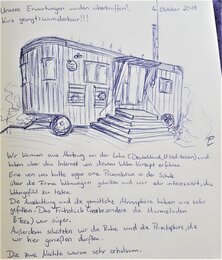 Unsere Erwartungen wurden übertroffen!
4. Oktober 2018
Kurz gesagt: wunderbar!!!
Wir kamen aus Marburg an der Lahn (Deutschland, Mittelhessen) und
haben über das Internet von diesem tollen Konzept erfahren
Eine von uns hatte sogar eine Präsentation in der Schule
über die Firma Wohnwagen gehalten und war sehr interessiert, das
Wohngefühl zu
Die Ausstattung und die gemütliche Atmosphäre haben uns sehr
gefallen. Das Frühstück (insbesondere die Marmeladen
& Tees) war super.
Außerdem schätzten wir die Ruhe und die Privatsphäre, die
wir hier genießen durften.
Die zwei Nächte waren sehr erholsam.